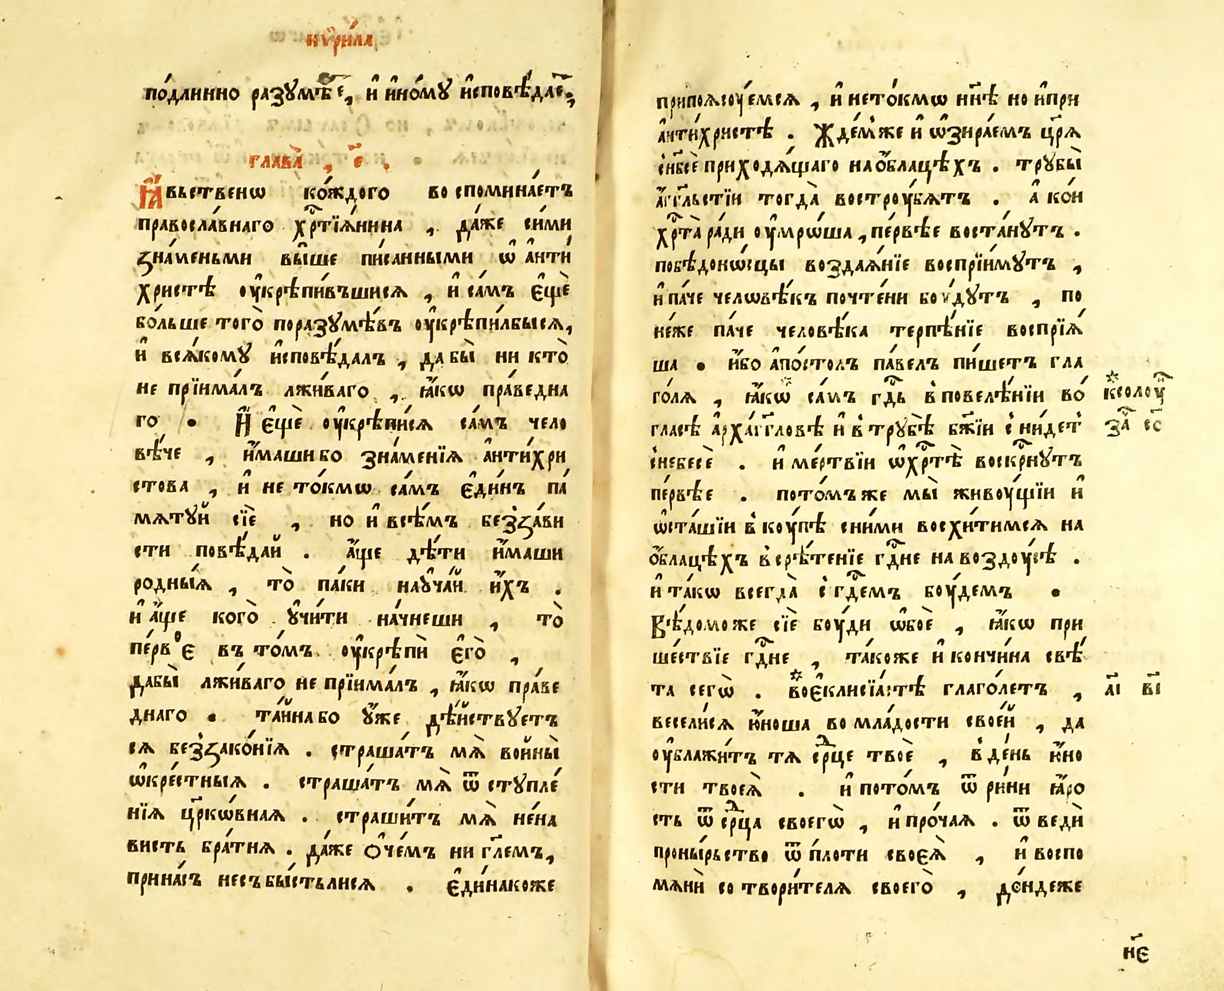 кѷри́ла
по́длинно разꙋмѣ́е, и҆ и҆но́мꙋ и҆сповѣ́дае,
глава̀ , є҃ .
Ꙗ҆́вьственѡ ко́ждого во споминае́тъ
правосла́внаго хрⷭ҇тїѧ́нина , да́же си́ми
зна́меньми вы́ше пи́санными ѡ҆ а҆нти
христѣ ᲂу҆крѣпи́въшисѧ , и҆ са́мъ є҆щѐ
бо́льше того̀ поразꙋмѣ́въ ᲂу҆крѣпи́лбысѧ,
и҆ всѧ́комꙋ и҆сповѣ́далъ , да бы̀ ни кто̀
не прїима́лъ лжи́ваго , ꙗ҆́кѡ пра́ведна
го • И҆ є҆щѐ ᲂу҆крѣпи́сѧ са́мъ чело
вѣ́че , и҆́маши бо зна́менїѧ а҆нти́хри
стова , и҆ не то́кмѡ са́мъ є҆ди́нъ па́
мѧтꙋй сїѐ , но и҆ всѣ́мъ без̾ за́ви
сти повѣ́дай . а҆́ще дѣ́ти и҆́маши
родны́ѧ , то̀ па́ки наꙋча́й и҆́хъ .
и҆ а҆́ще кого̀ ꙋ҆чи́ти на́чнеши , то̀
пе́рвᲂє въ то́мъ ᲂу҆крѣпѝ є҆го̀ ,
дабы̀ лжи́ваго не прїима́лъ , ꙗ҆́кѡ пра́ве
днаго • та́йна бо ᲂу҆же дѣ́йствꙋетъ
сѧ без̾зако́нїѧ . страша́тъ мѧ̀ во́йны̀
ѡ҆кре́стныѧ . страша́тъ мѧ̀ ѿ стꙋпле́
нїѧ цр҃ко́внаѧ . страши́тъ мѧ̀ не́на
висть бра́тнѧ . да́же ѻ҆ че́мъ ни гл҃емъ,
при на́съ несъ бы́стьлисѧ . є҆ди́накоже
припоѧсоу́емсѧ , и҆ нето́кмѡ нн҃ѣ но и҆ при
а҆нти́христѣ . Жде́мже и҆ ѡ҆зира́емъ цр҃ѧ̀
с̾нб҃сѐ приходѧ́щаго на ѡ҆́блацѣхъ . трꙋбы̀
а҆́гг҃льстїи тогда̀ востроу́бѧтъ . а҆ ко́и
хрⷭ҇та̀ ра́ди ᲂу҆мро́ша , пе́рвѣе воста́нꙋтъ .
побѣ́доно́сцы воздаѧ́нїе воспрїи́мꙋтъ ,
и҆ па́че человѣ́къ почте́ни бо́удꙋтъ , по
не́же па́че человѣ́ка терпѣ́нїе воспрїѧ́
ша • и҆́бо а҆по́столъ па́велъ пи́шетъ гла
го́лѧ , ꙗ҆́кѡ са́мъ гдⷭ҇ь в̾ повелѣ́нїи во́
гласѣ а҆рха́гг҃ловѣ и҆ в̾ трꙋбѣ̀ бж҃їи с̾ни́детъ
с̾небесѐ . и҆ ме́ртвїи ѡ҆ хрⷭ҇тѣ̀ воскрⷭ҇нꙋтъ
пе́рвѣе . пото́мъже мы̀ живоу́щїи и҆
ѡ҆ста́шїи в̾ коу́пѣ с̾ни́ми восхи́тимсѧ на
ѡ҆́блацѣхъ в̾ срѣ́тенїе гдⷭ҇не на воздоу́сѣ .
и҆ та́кѡ всегда̀ с̾ гдⷭ҇емъ боу́демъ •
Вѣ́доможе сїѐ боу́ди ѡ҆бо́е , ꙗ҆́кѡ при
ше́ствїе гдⷭ҇не , та́коже и҆ кончи́на свѣ́
та сегѡ̀ . во є҆кклисїа́стѣ глаго́летъ ,
весели́сѧ ю҆́ноша во мла́дости свое́й , да
ᲂу҆блажи́тъ тѧ се́рⷣце твоѐ , в̾ де́нь ю҆́но
сти твоеѧ̀ . и҆ пото́мъ ѿ ри́ни ꙗ҆́ро
сть ѿ се́рⷣца своегѡ̀ , и҆ про́чаѧ . ѿ ведѝ
проны́рьство ѿ пло́ти своеѧ̀ , и҆ воспо
мѧнѝ со твори́телѧ своего̀ , до́ндеже
а҃і в҃і
н҃є